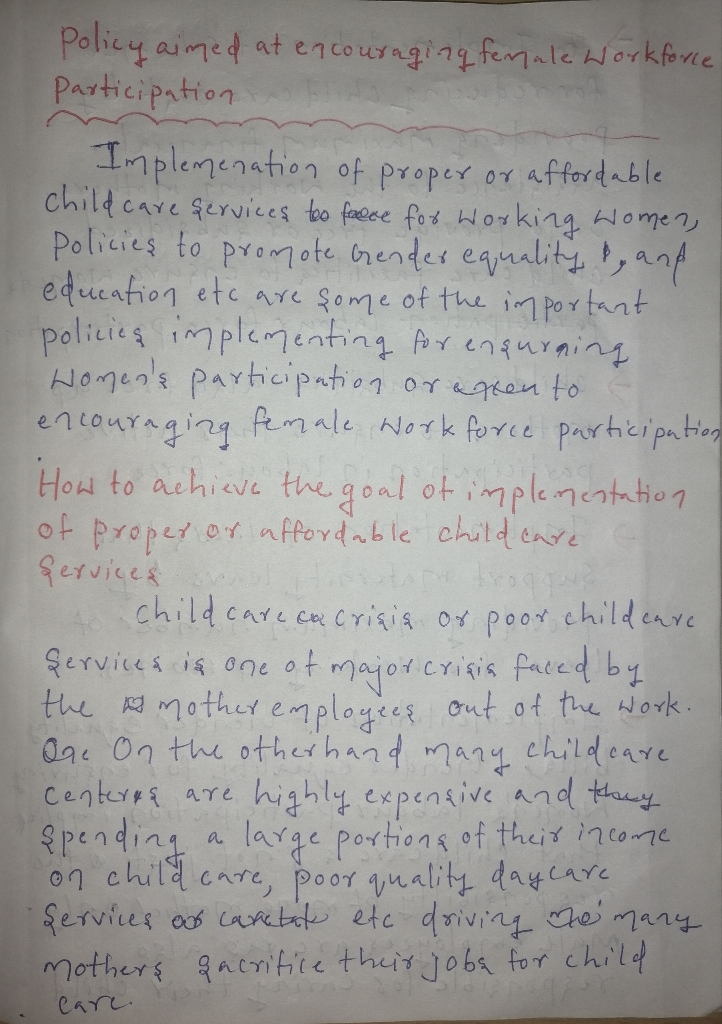 Policy aimed at encouraging female Workforce
Participation
Implemenation of proper or affordable
Child care Services for Working Women,
Policies to promote Gender equality, and
education etc are Some of the important
policies implementing for ensurning
Women's participation or to
encouraging female Work force participation
How to achieve the goal of implementation
of proper or affordable child care
Services
Child care crisis or poor child care
Services is one of major crisis faced by
the mother employees out of the work.
On the otherhand many child care
centers are highly expensive and
Spending a large portions of their income
on child care, poor quality daycare
Services etc driving many
mothers Sacrifice their jobs for child
care.